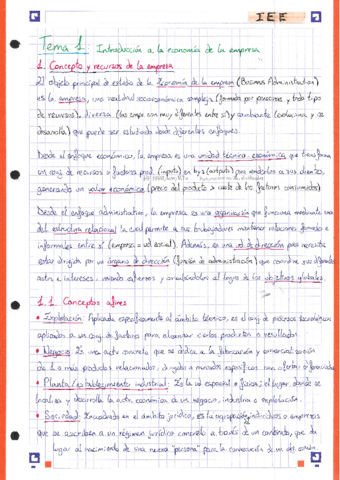 IEE
Tema 1: Introducción a la economía de la empresa
1. Concepto y recursos de la empresa
El objeto principal de estudio de la Economía de la empresa (Business Administration)
es la empresa, una realidad socioeconómica compleja (formada por personas y todo tipo
de recursos), diversa (las empr. son muy diferentes entre sí) y cambiante (evoluciona y se
desarrolla) que puede ser estudiada desde diferentes enfoques.
Desde el enfoque económico, la empresa es una unidad técnico-económica que transforma
un conj. de recursos o factores prod. (inputs) en b y s (outputs) para venderlos a sus clientes,
generando un valor económico (precio del producto > coste de los factores consumidos)
Desde el enfoque administrativo, la empresa es una organización que funciona mediante una
det. estructura relacional la cual permite a sus trabajadores mantener relaciones formales e
informales entre sí (empresa = ud social). Además, es una ud de dirección pues necesita
estar dirigida por un órgano de dirección (función de administración) que coordina sus diferentes
activ. e intereses, uniendo esfuerzos y orientándolos al logro de los objetivos globales.
1.1 Conceptos afines
• Explotación: Aplicada específicamente al ámbito técnico, es el conj. de procesos tecnológicos
aplicados a un conj. de factores para alcanzar ciertos productos o resultados.
• Negocio: Es una activ. concreta que se dedica a la fabricación y comercialización
de 1 o más productos relacionados, dirigidos a mercados específicos con oferta diferenciada
• Planta/establecimiento industrial: Es la ud espacial o física; el lugar donde se
localiza y desarrolla la activ. económica de un negocio, industria o explotación.
• Sociedad: Encuadrada en el ámbito jurídico, es la agrupación de individuos o empresas
que se adscriben a un régimen jurídico concreto a través de un contrato, que da
lugar al nacimiento de una nueva "persona" para la consecución de un obj. común.